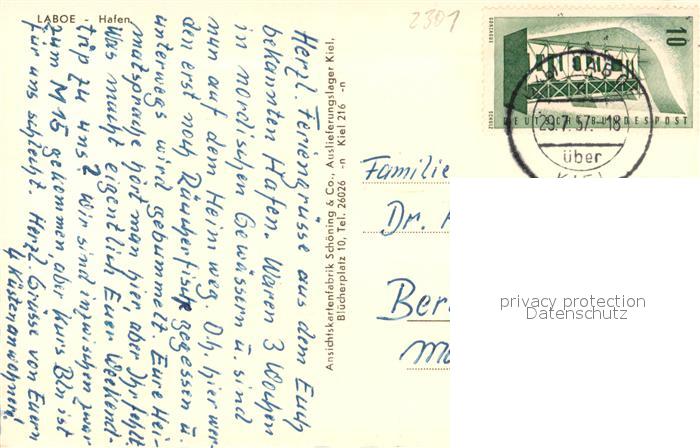 LABOE - Hafen
2301
Herzl. Feriengrüsse aus dem Euch
bekannten Hafen. Waren 3 Wochen
in nordischen Gewässern u. sind
nun auf dem Heimweg. D.h. hier wer
den erst noch Räucherfische gegessen u.
unterwegs wird gebummelt. Eure Hei-
matsprache hört man hier, aber Ihr fehlt
Was macht eigentlich Euer Weekend-
trip zu uns? Wir sind inzwischen zwar
zum M 15 gekommen, aber Kurs Bln ist
für uns schlecht. Herzl. Grüsse von Euern
4 Küstenanwohnern!
Ansichtskartenfabrik Schöning & Co., Auslieferungslager Kiel,
Blücherplatz 10, Tel. 26026 -n Kiel 216 -n
10
DEUTSCHE BUNDESPOST
LABO
29.7.57.-18
über
KIEL
Familie
Dr.
Ber
privacy protection
Datenschutz